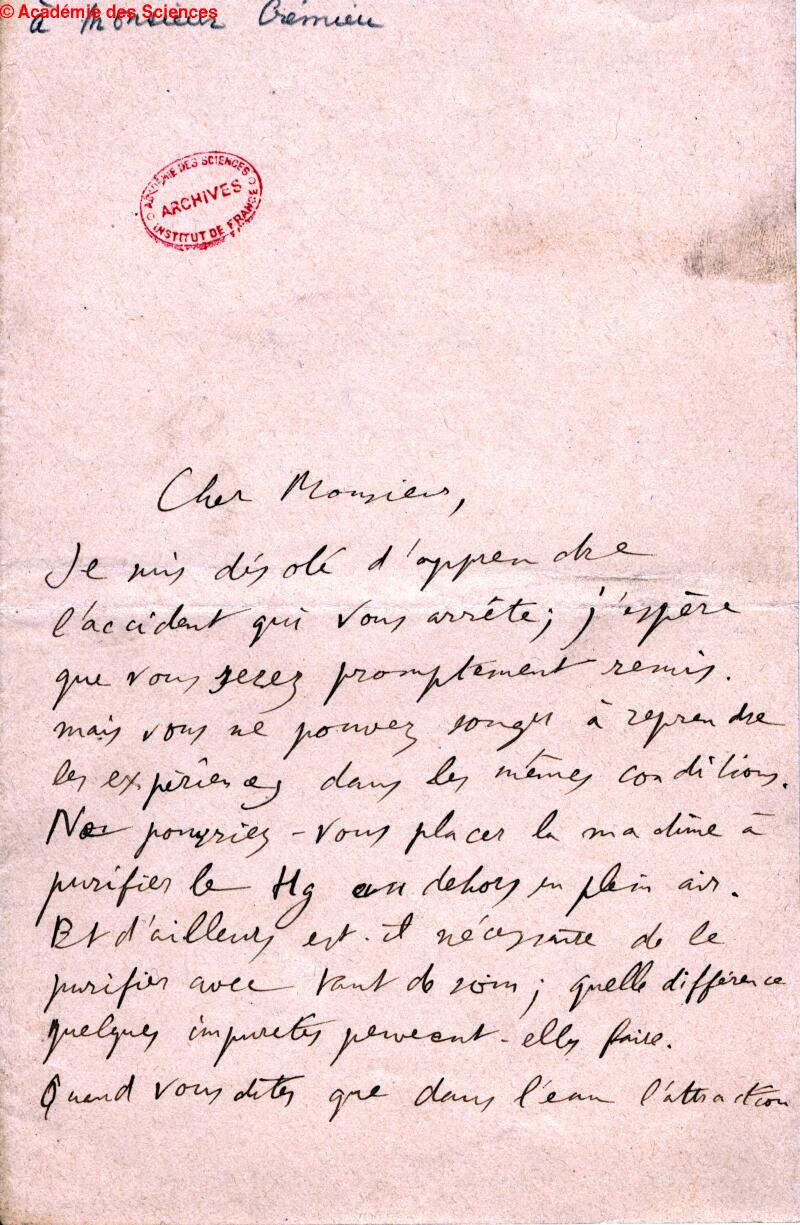 © Académie des Sciences
à Monsieur Crémieu
ACADÉMIE DES SCIENCES
ARCHIVES
INSTITUT DE FRANCE
Cher Monsieur,
Je suis désolé d'apprendre
l'accident qui vous arrête; j'espère
que vous serez promptement remis.
mais vous ne pouvez songer à reprendre
les expériences dans les mêmes conditions.
Ne pourriez-vous placer la machine à
purifier le Hg au dehors en plein air.
Et d'ailleurs est-il nécessaire de le
purifier avec tant de soin; quelle différence
quelques impuretés peuvent-elles faire.
Quand vous dites que dans l'eau l'attraction